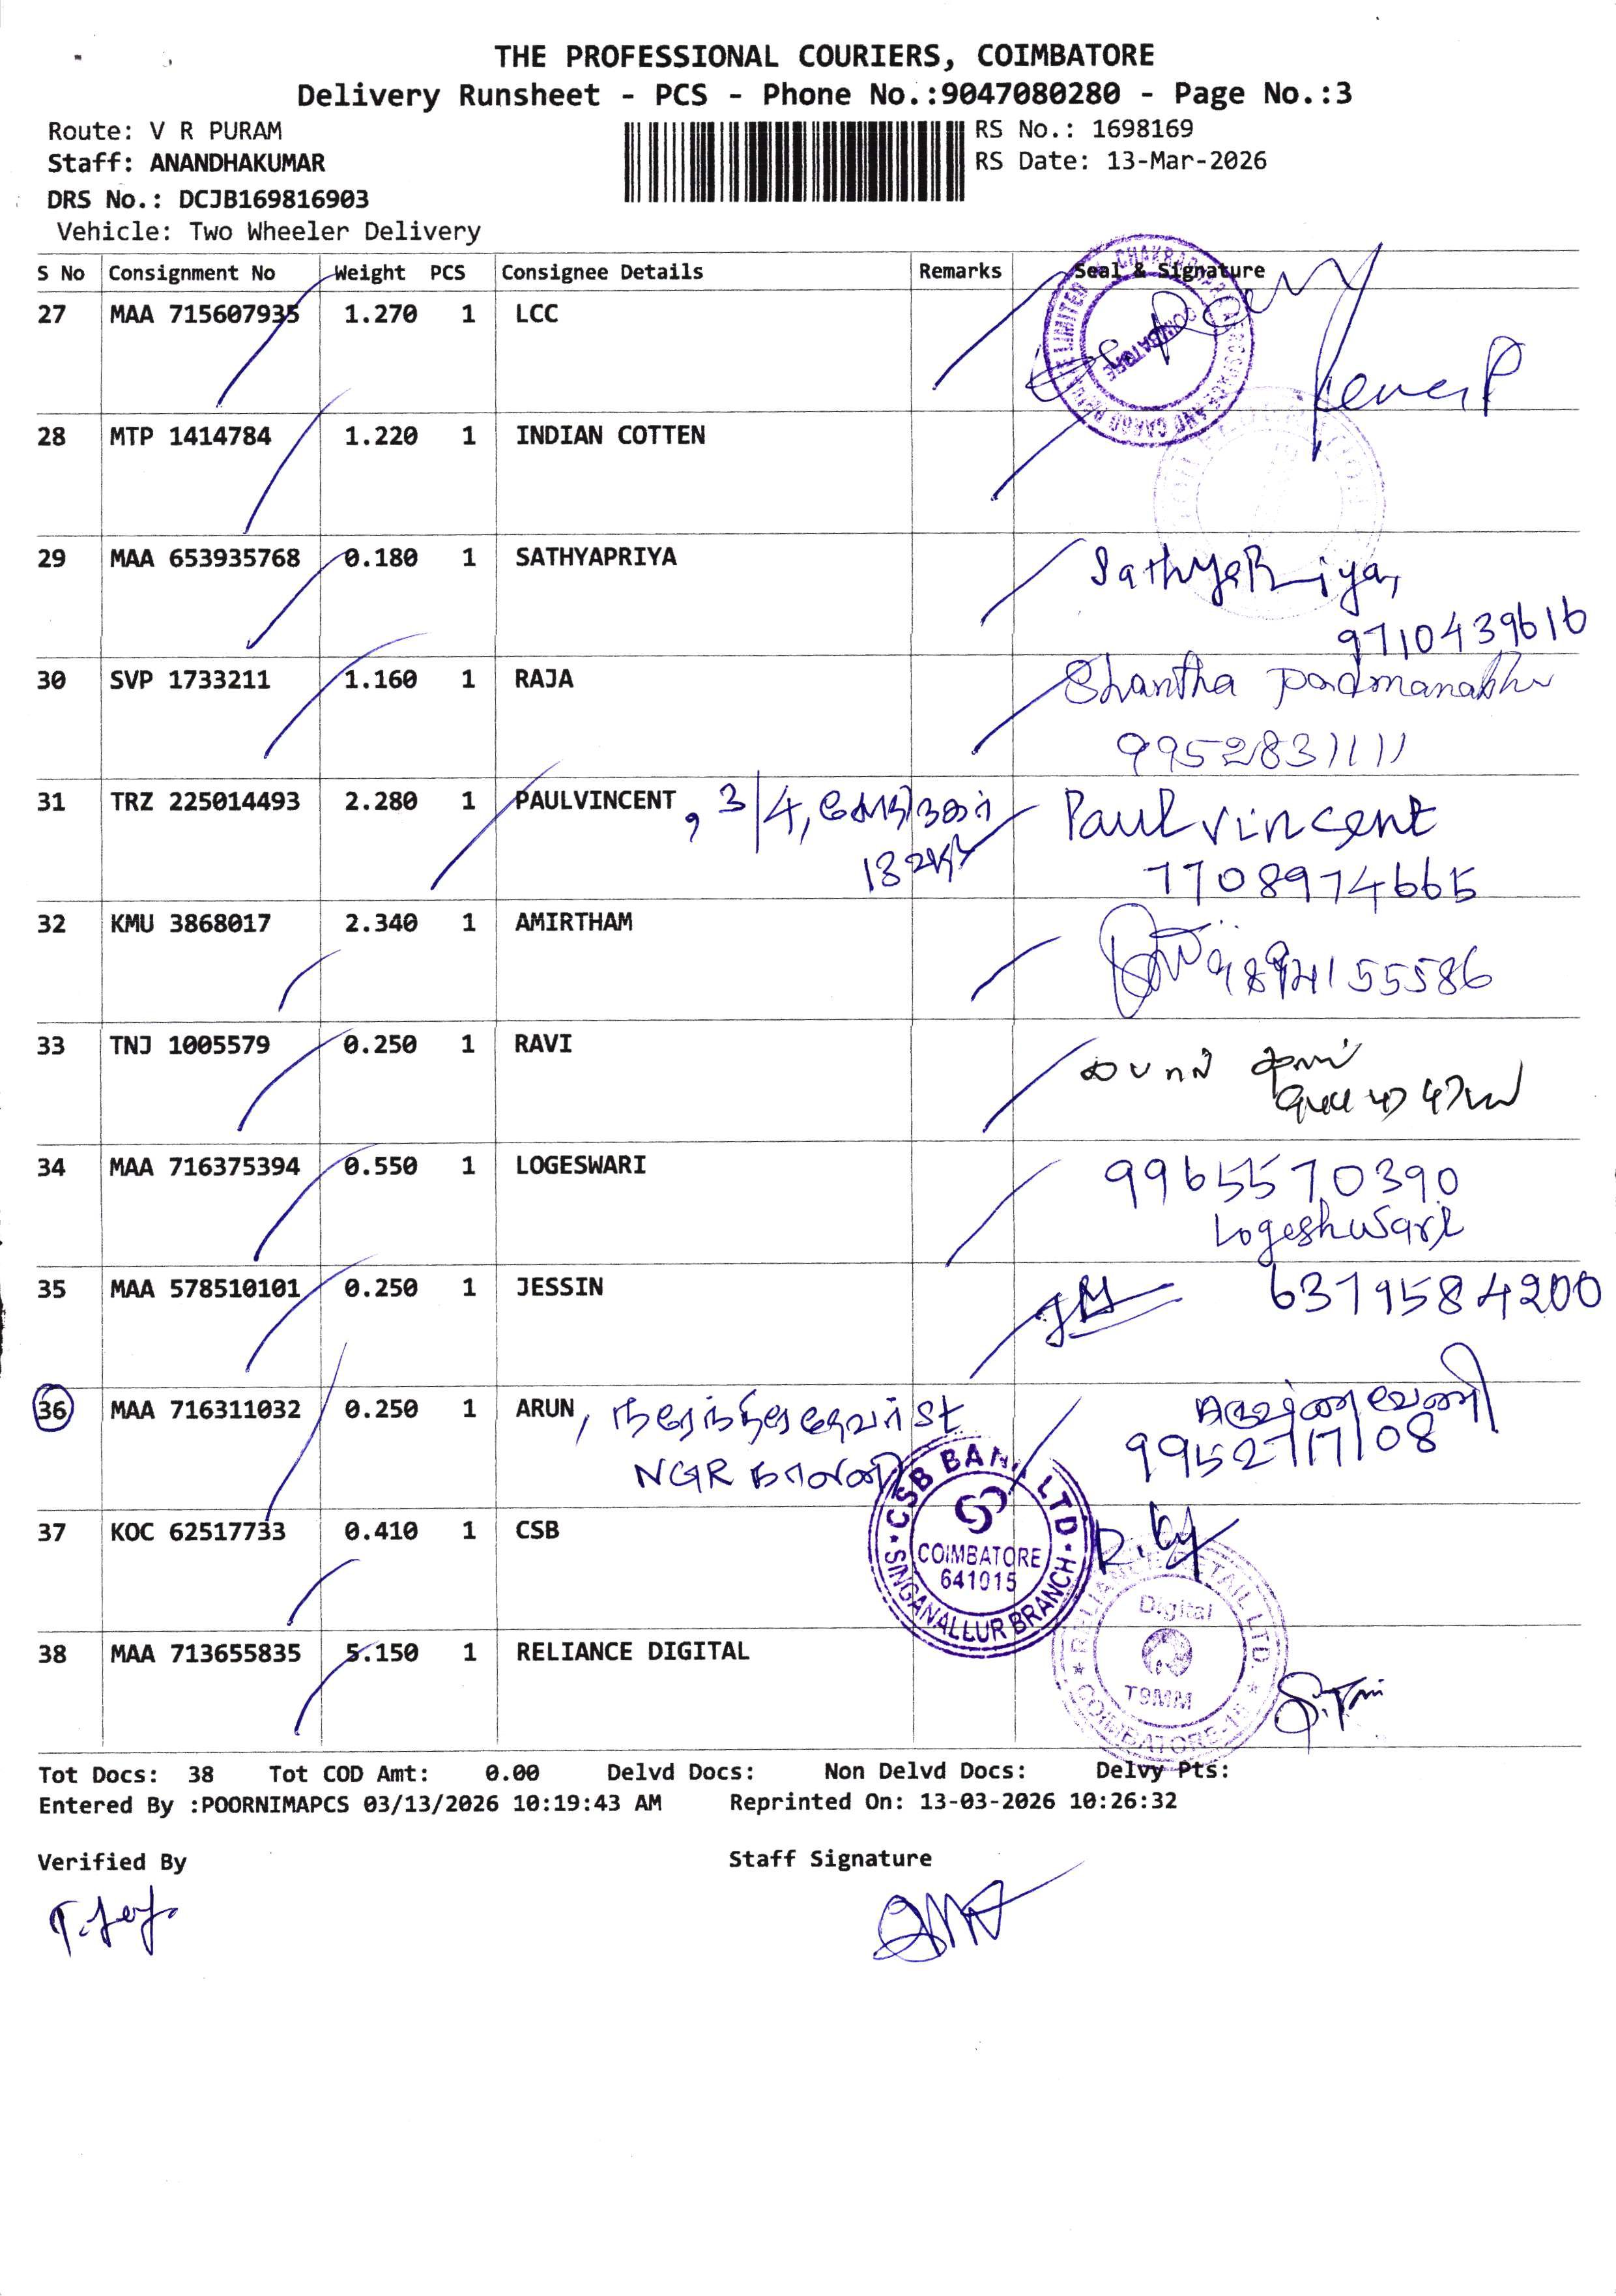 THE PROFESSIONAL COURIERS, COIMBATORE
Delivery Runsheet - PCS - Phone No.:9047080280 - Page No.:3
Route: V R PURAM
RS No.: 1698169
Staff: ANANDHAKUMAR
RS Date: 13-Mar-2026
DRS No.: DCJB169816903
Vehicle: Two Wheeler Delivery
S No Consignment No Weight PCS Consignee Details Remarks Seal & Signature
27 MAA 715607935 1.270 1 LCC
COIMBATORE
28 MTP 1414784 1.220 1 INDIAN COTTEN
29 MAA 653935768 0.180 1 SATHYAPRIYA Sathyapriya,
9710439616
30 SVP 1733211 1.160 1 RAJA Shantha Padmanabhan
9952831111
31 TRZ 225014493 2.280 1 PAULVINCENT , 3/4, Paul vincent
7708974665
32 KMU 3868017 2.340 1 AMIRTHAM
9894155586
33 TNJ 1005579 0.250 1 RAVI
34 MAA 716375394 0.550 1 LOGESWARI 9965570390
Logeshwari
35 MAA 578510101 0.250 1 JESSIN 6379584200
36 MAA 716311032 0.250 1 ARUN, St
NGR காலனி 9952717108
37 KOC 62517733 0.410 1 CSB
CSB BANK LTD
COIMBATORE
641015
SINGANALLUR BRANCH
38 MAA 713655835 5.150 1 RELIANCE DIGITAL
RELIANCE RETAIL LTD.
Digital
T9MM
COIMBATORE-15
Tot Docs: 38 Tot COD Amt: 0.00 Delvd Docs: Non Delvd Docs: Delvy Pts:
Entered By :POORNIMAPCS 03/13/2026 10:19:43 AM Reprinted On: 13-03-2026 10:26:32
Verified By Staff Signature